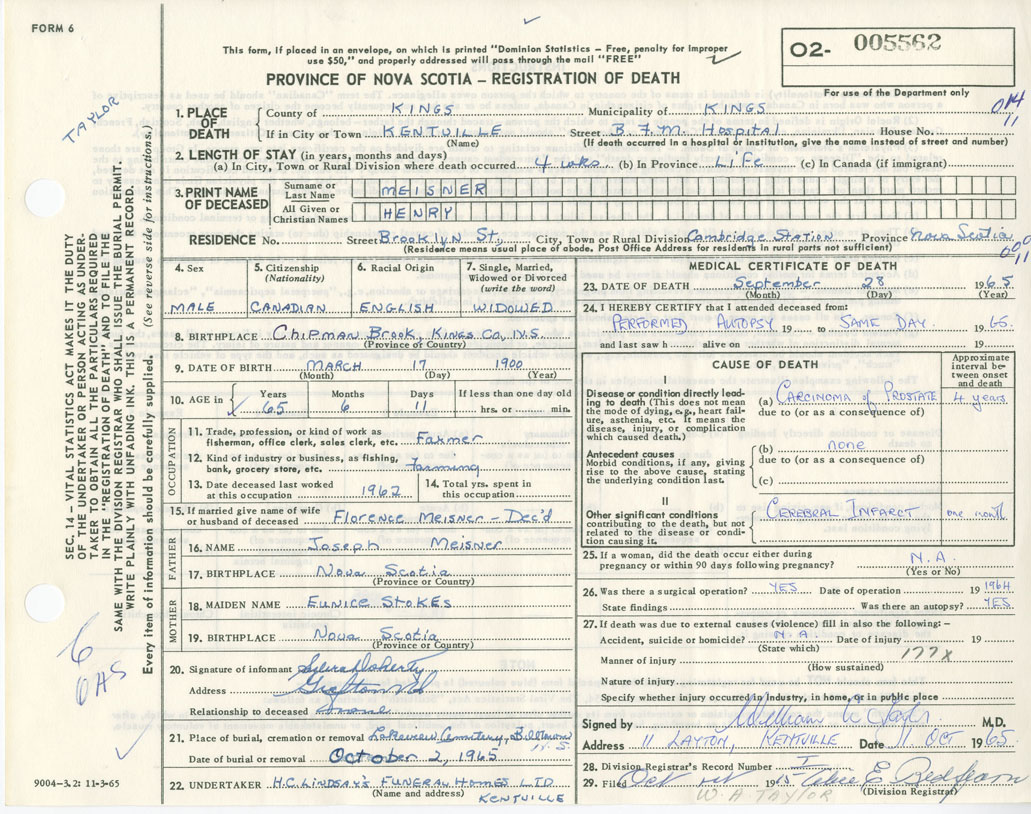 FORM 6
This form, if placed in an envelope, on which is printed "Dominion Statistics – Free, penalty for improper
use $50," and properly addressed will pass through the mail "FREE"
O2- 005562
PROVINCE OF NOVA SCOTIA – REGISTRATION OF DEATH
For use of the Department only
TAYLOR
014
11
1. PLACE OF DEATH
County of KINGS Municipality of KINGS
If in City or Town KENTVILLE Street B.F.M. Hospital House No.
(Name) (If death occurred in a hospital or institution, give the name instead of street and number)
2. LENGTH OF STAY (in years, months and days)
(a) In City, Town or Rural Division where death occurred 4 wks (b) In Province Life (c) In Canada (if immigrant)
3. PRINT NAME OF DECEASED
Surname or Last Name MEISNER
All Given or Christian Names HENRY
RESIDENCE No. Street Brooklyn St, City, Town or Rural Division Cambridge Station Province Nova Scotia
(Residence means usual place of abode. Post Office Address for residents in rural parts not sufficient)
SEC. 14 – VITAL STATISTICS ACT MAKES IT THE DUTY
OF THE UNDERTAKER OR PERSON ACTING AS UNDER-
TAKER TO OBTAIN ALL THE PARTICULARS REQUIRED
IN THE "REGISTRATION OF DEATH" AND TO FILE THE
SAME WITH THE DIVISION REGISTRAR WHO SHALL ISSUE THE BURIAL PERMIT.
WRITE PLAINLY WITH UNFADING INK. THIS IS A PERMANENT RECORD.
Every item of information should be carefully supplied. (See reverse side for instructions.)
4. Sex
MALE
5. Citizenship
(Nationality)
CANADIAN
6. Racial Origin
ENGLISH
7. Single, Married,
Widowed or Divorced
(write the word)
WIDOWED
8. BIRTHPLACE Chipman Brook, Kings Co, N.S.
(Province or Country)
9. DATE OF BIRTH MARCH 17 1900
(Month) (Day) (Year)
10. AGE in
Years 65
Months 6
Days 11
If less than one day old
hrs. or min.
OCCUPATION
11. Trade, profession, or kind of work as
fisherman, office clerk, sales clerk, etc. Farmer
12. Kind of industry or business, as fishing,
bank, grocery store, etc. farming
13. Date deceased last worked
at this occupation 1962
14. Total yrs. spent in
this occupation
15. If married give name of wife
or husband of deceased Florence Meisner – Dec'd
FATHER
16. NAME Joseph Meisner
17. BIRTHPLACE Nova Scotia
(Province or Country)
MOTHER
18. MAIDEN NAME EUNICE STOKES
19. BIRTHPLACE Nova Scotia
(Province or Country)
20. Signature of informant
Address
Relationship to deceased
21. Place of burial, cremation or removal Lakeview Cemetery, N.S.
Date of burial or removal October 2, 1965
22. UNDERTAKER H.C. LINDSAY'S FUNERAL HOMES LTD
(Name and address) KENTVILLE
6
9004-3.2: 11-3-65
MEDICAL CERTIFICATE OF DEATH
23. DATE OF DEATH September 28 1965
(Month) (Day) (Year)
24. I HEREBY CERTIFY that I attended deceased from:
PERFORMED AUTOPSY 19 to SAME DAY 1965
and last saw h alive on 19
CAUSE OF DEATH
Approximate
interval be-
tween onset
and death
I
Disease or condition directly lead-
ing to death (This does not mean
the mode of dying, e.g., heart fail-
ure, asthenia, etc. It means the
disease, injury, or complication
which caused death.)
(a) CARCINOMA of PROSTATE 4 years
due to (or as a consequence of)
Antecedent causes
Morbid conditions, if any, giving
rise to the above cause, stating
the underlying condition last.
(b) none
due to (or as a consequence of)
(c)
II
Other significant conditions
contributing to the death, but not
related to the disease or condi-
tion causing it.
CEREBRAL INFARCT one month
25. If a woman, did the death occur either during
pregnancy or within 90 days following pregnancy? N.A.
(Yes or No)
26. Was there a surgical operation? YES Date of operation 1964
State findings Was there an autopsy? YES
27. If death was due to external causes (violence) fill in also the following: –
Accident, suicide or homicide? N.A. Date of injury 19
(State which)
177X
Manner of injury
(How sustained)
Nature of injury
Specify whether injury occurred in industry, in home, or in public place
Signed by William M.D.
Address 11 LAYTON, KENTVILLE Date 11 OCT 1965
28. Division Registrar's Record Number
29. Filed Oct 19
(Division Registrar)
W. A. TAYLOR